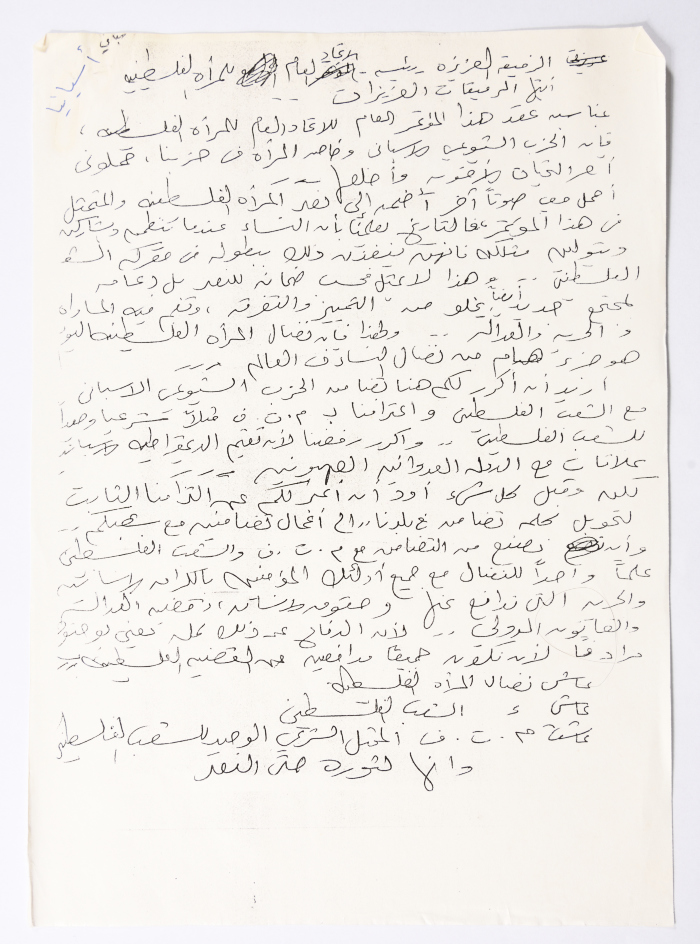 أسبانيا
الرفيقة العزيزة رئيسة الاتحاد العام للمرأة الفلسطينية
أيتها الرفيقات العزيزات
بمناسبة عقد هذا المؤتمر العام للاتحاد العام للمرأة الفلسطينية ،
فإن الحزب الشيوعي الاسباني وخاصة المرأة في حزبنا ، حملوني
أحر التحيات الأخوية وأخلصها
أحمل معي صوتاً آخر أضمه إلى المرأة الفلسطينية والمتمثل
في هذا المؤتمر فالتاريخ يعلمنا بأن النساء عندما تنظم وتشارك
فإنهن ينفذن ذلك ببطولة في معركة الشعب
الفلسطيني .. وهذا لا يمثل فحسب ضمانة للنصر بل دعامة
لمجتمع جديد أيضاً يخلو من التمييز والتفرقة ، وتقم فيه المساواة
و الحرية والعدالة .. ولهذا فإن نضال المرأة الفلسطينية اليوم
هو جزء هام من نضال النساء في العالم
أريد أن أكرر لكم هنا تضامن الحزب الشيوعي الاسباني
مع الشعب الفلسطيني و اعترافنا بـ م.ت.ف ممثلاً شرعياً وحيداً
للشعب الفلسطيني .. وأكرر رفضنا لأن تقيم الديمقراطية الاسبانية
علاقات مع الدولة العدوانية الصهيونية
لكن وقبل كل شيء أود أن أعبر لكم عن التزامنا الثابت
لتحويل كلمة تضامن في بلدنا .. الى أفعال تضامنية مع شعبكم ..
وأن نصنع من التضامن مع م.ت.ف والشعب الفلسطيني
علماً واحداً للنضال مع جميع أولئك المؤمنين بالكرامة الانسانية
والحرية التي ندافع عنها وحقوق الانسان ، وقضية العدالة
والقانون الدولي .. لأن الدفاع عن ذلك كله يعني
مرادفاً لأن نكون جميعاً مدافعين عن القضية الفلسطينية
عاش نضال المرأة الفلسطينية
عاش الشعب الفلسطيني
عاشت م.ت.ف الممثل الشرعي الوحيد للشعب الفلسطيني
وانها لثورة حتى النصر